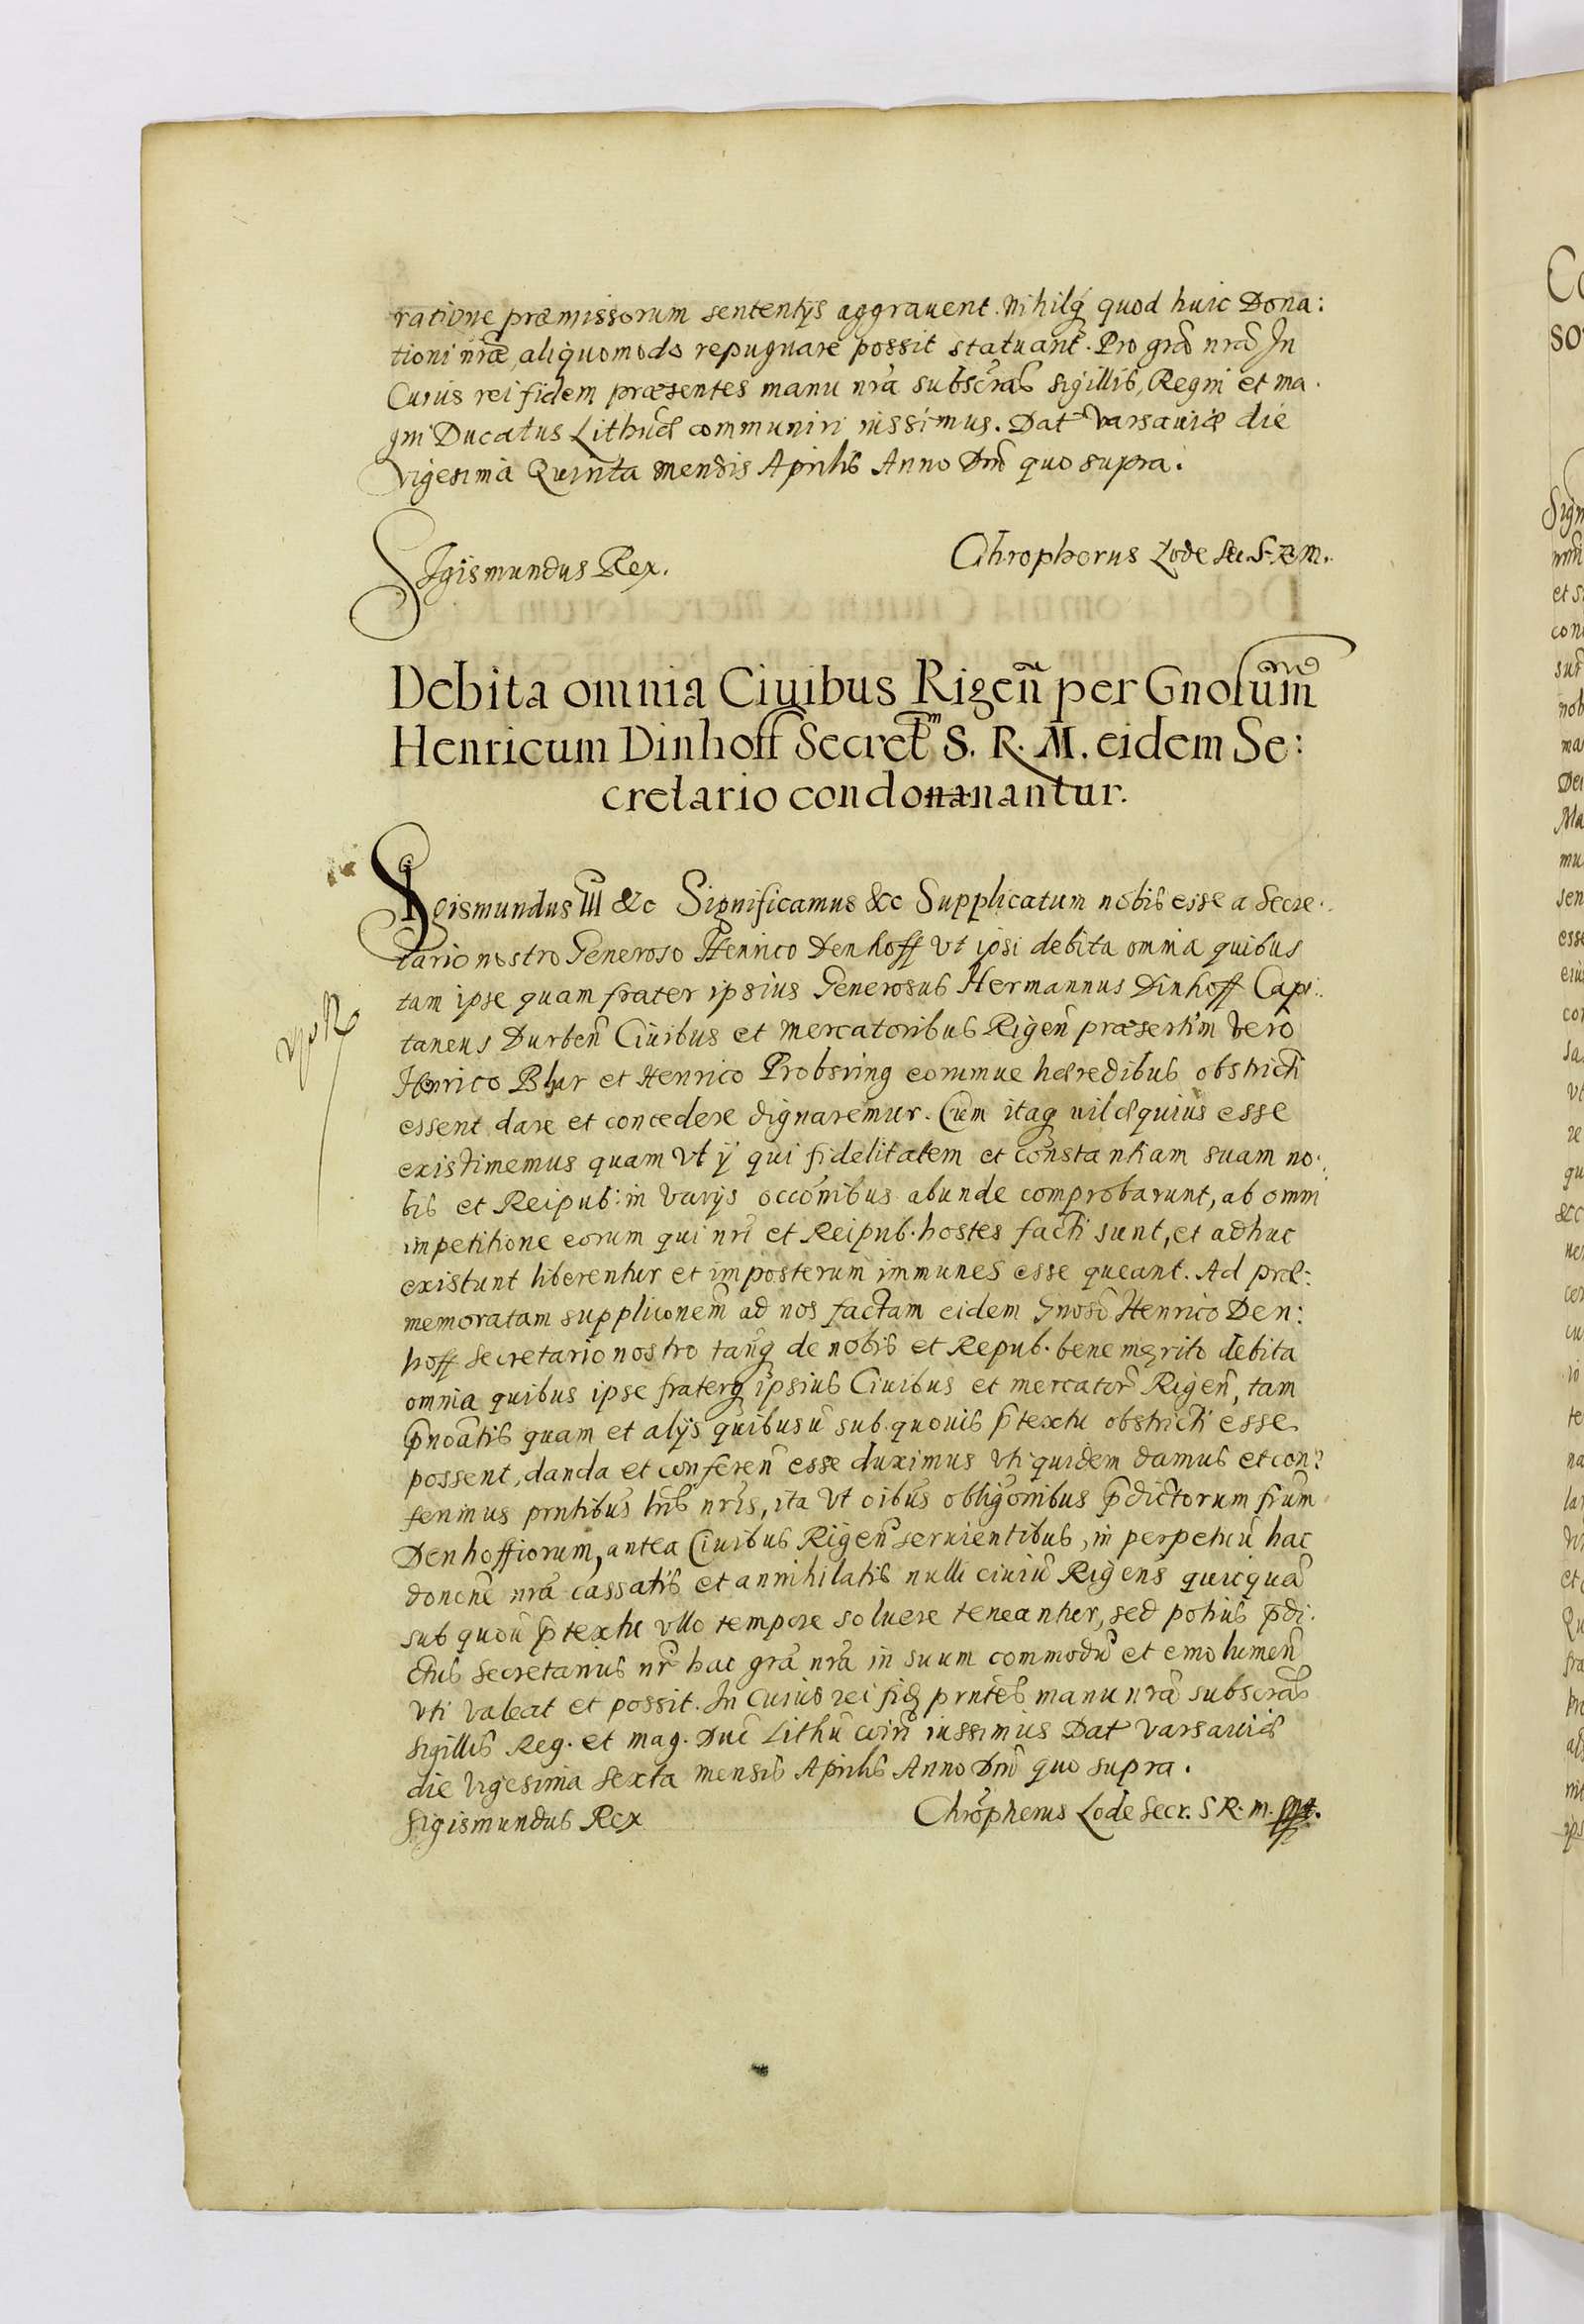 ratione præmissorum sententijs aggrauent. Nihilq̨ quod huic Dona:
tioni nr̃æ, aliquomodo repugnare possit statuant. Pro grã nrã In
Cuius rei fidem præsentes manu nrã subscras̃ sigillis, Regni et ma.
gni Ducatus Lithuæ communiri iussimus. Dat Varsauiæ die
vigesima Quinta mensis Aprilis Anno Dnĩ quo supra.
Sigismundus Rex.
Chrophorus Lode Sec. S. R. M.
Debita omnia Ciuibus Rigeñ per Gnosum̃
Henricum Dinhoff Secretm̃ S. R. M. eidem Se:
cretario condonanantur.
Sigismundus III &c Significamus &c Supplicatum nobis esse a Secre.
tario nostro Generoso Henrico Denhoff Vt ipsi debita omnia quibus
tam ipse quam frater ipsius Generosus Hermannus Dinhoff Capi:
taneus Durbeñ Ciuibus et mercatoribus Rigeñ præsertim Vero
Henrico Blur et Henrico Probsring eorumue hæredibus obstricti
essent dare et concedere dignaremur. Cum itaq̨ nil æquius esse
existimemus quam Vt ij qui fidelitatem et constantiam suam no.
bis et Reipub: in Varijs occõnibus abunde comprobarunt, ab omni
impetitione eorum qui nrĩ et Reipub. hostes facti sunt, et adhuc
existunt liberentur et imposterum immunes esse queant. Ad præ:
memoratam suppliconem̃ ad nos factam eidem Gnosõ Henrico Den:
hoff Secretario nostro tanq̨ de nobis et Repub. bene merito debita
omnia quibus ipse fraterq̨ ipsius Ciuibus et mercator̃ Rigeñ, tam
p̃noãtis quam et alijs quibusũ sub quouis p̃textu obstricti esse
possent, danda et conferen̄ esse duximus vti quidem damus et con:
ferimus prñtibus lrĩs nrĩs, ita Vt oibũs obligõnibus p̃dictorum frum̃
Denhoffiorum, antea Ciuibus Rigeñ seruientibus, in perpetuũ hac
doncñe nrã cassatis et annihilatis nulli ciuiũ Rigens̃ quicquã
sub quoũ p̃textu vllo tempore soluere teneantur, sed potius p̃di.
ctus Secretarius nr̃ hac grã nrã in suum commodũ et emolumeñ
vti valeat et possit. In Cuius rei fiḑ prñtes manu nrã subscras̃
sigillis Reg. et mag. Duc̃ Lithũ coirĩ iussimus Dat Varsauiæ
die vigesima sexta mensis Aprilis Anno Dnĩ quo supra.
Sigismundus Rex
Chrõpherus Lode Secr. S R. M.